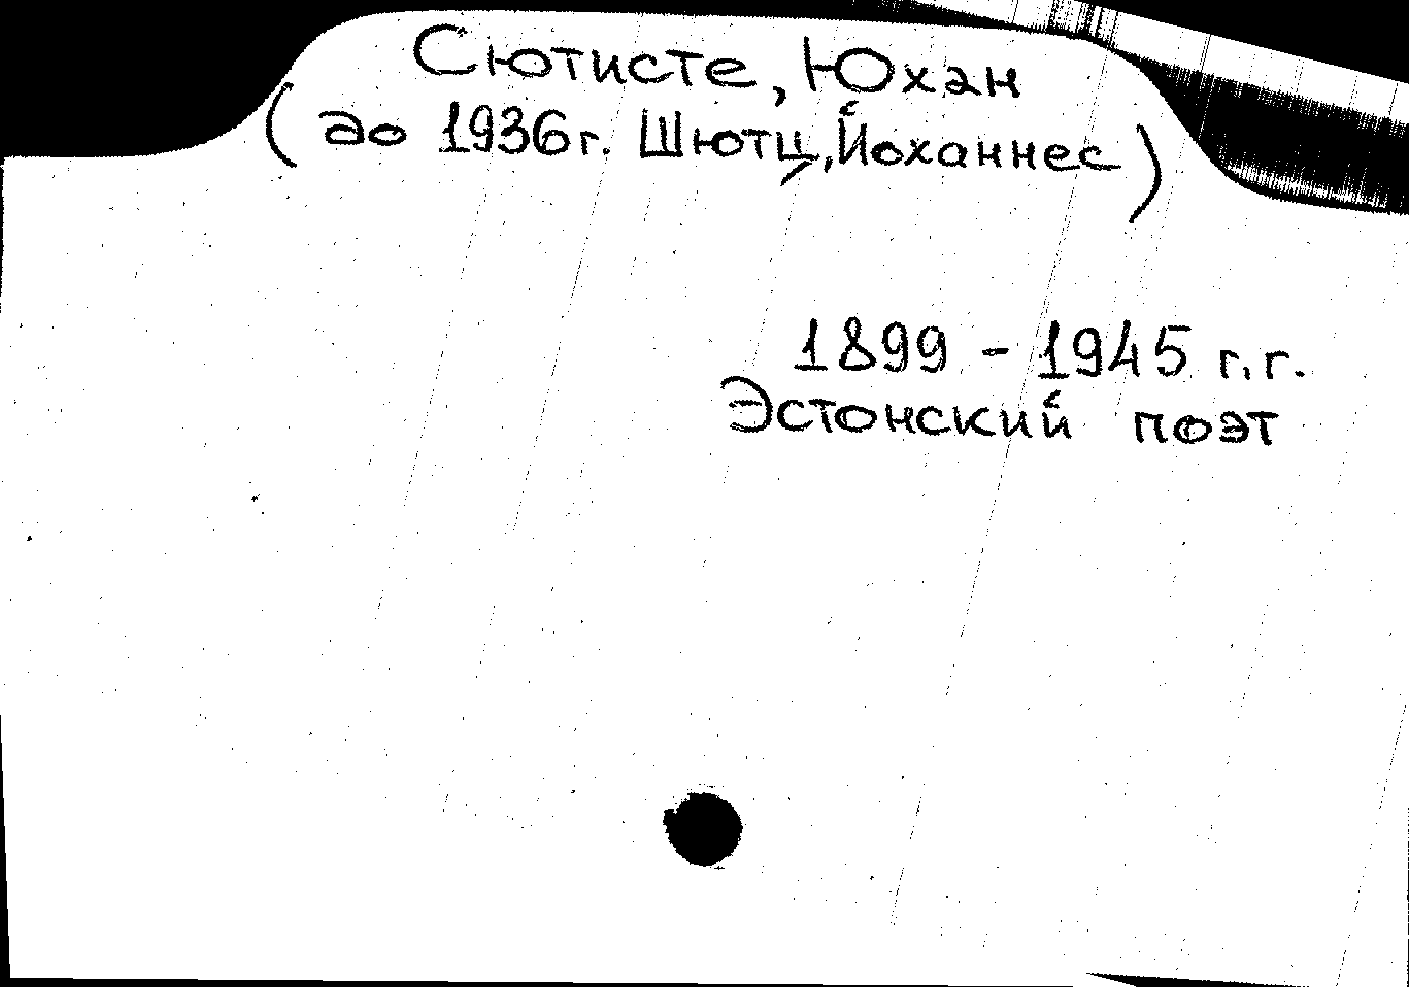 Сютисте, Юхан
(до 1936г. Шютц, Йоханнес)
1899 - 1945 г.г.
Эстонский поэт